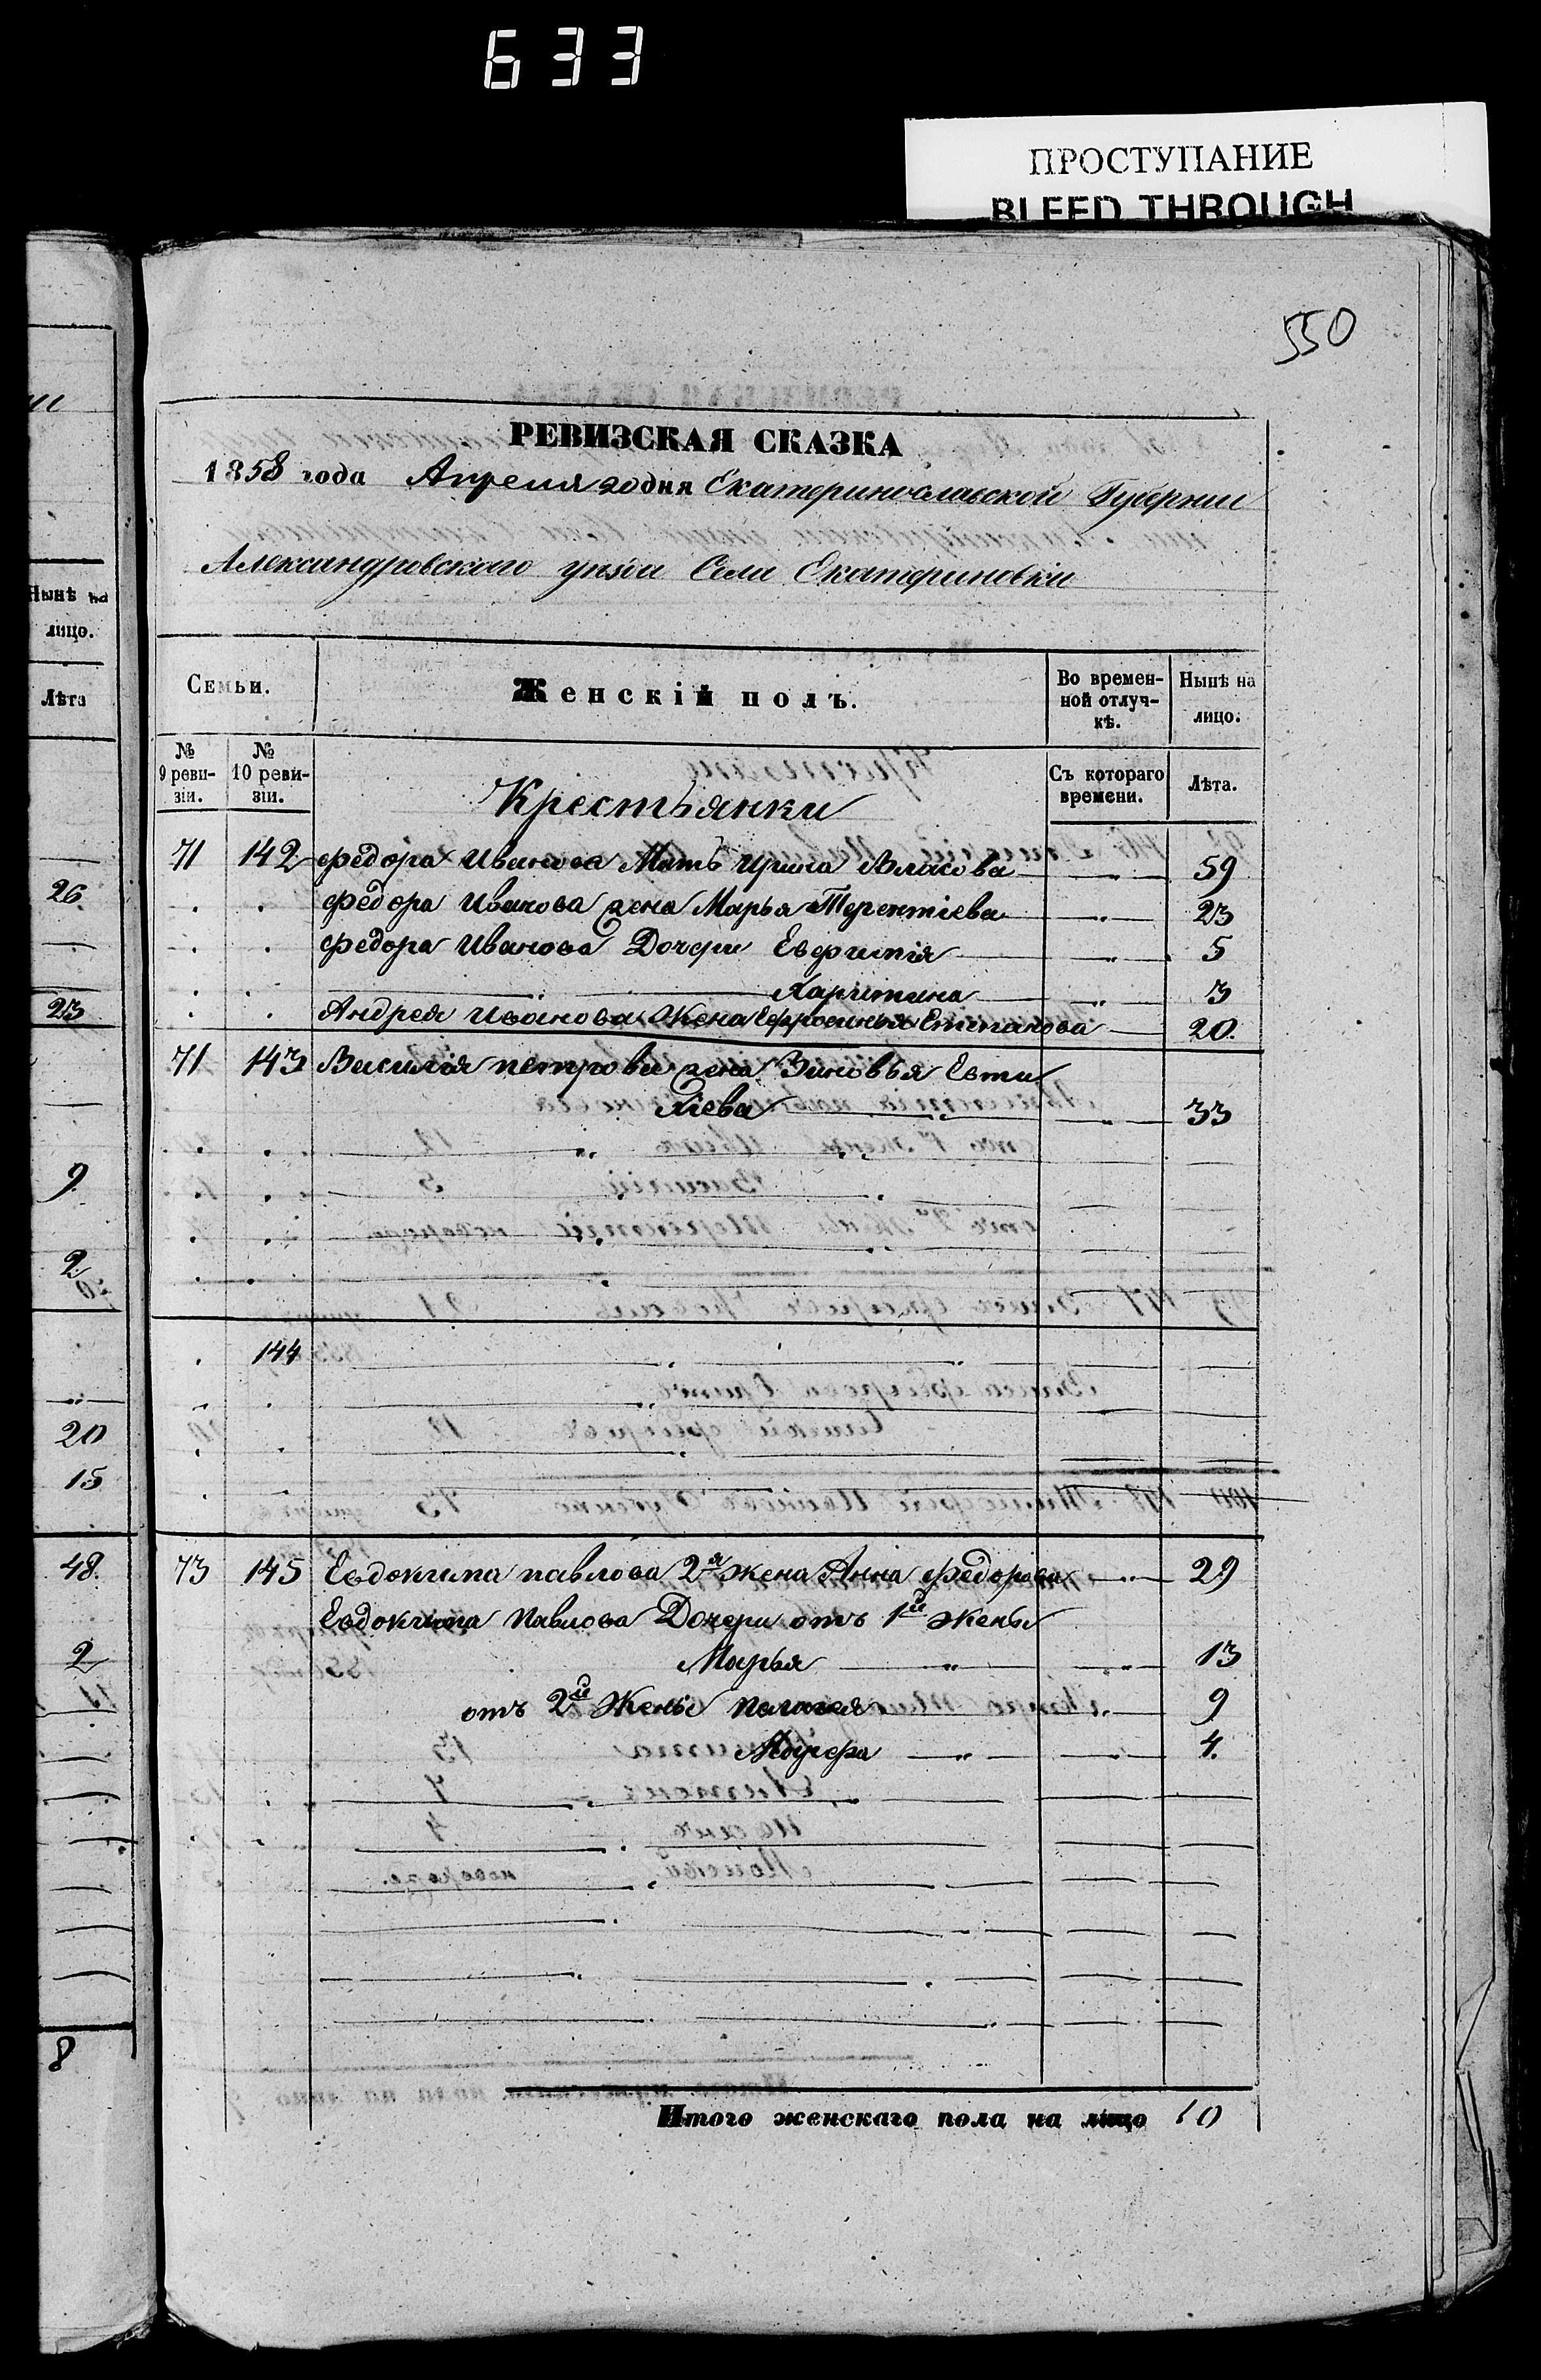 633
ПРОСТУПАНИЕ
BLEED THROUGH
550
РЕВИЗСКАЯ СКАЗКА
1858 года Апреля 20 дня Екатеринославской Губернии
Александровского уезда Села Екатериновки
Нынѣ на
лицо.
Лѣта
26
23
9
2
20
15
48
2
8
Семьи.
Женскій полъ.
Во времен-
ной отлуч-
кѣ.
Нынѣ на
лицо.
№
9 реви-
зіи.
№
10 реви-
зіи.
Съ котораго
времени.
Лѣта.
Крестьянки
71 142 Федора Иванова Мать Ирина Власова 59
Федора Иванова жена Марья Терентіева 23
Федора Иванова Дочери Евфимія 5
Харитина 3
Андрея Иванова Жена Ефросинья Степанова 20
71 143 Василія петрова жена Зиновья Евти
хіева 33
144
73 145 Евдокима павлова 2я жена Анна Федорова 29
Евдокима Павлова Дочери отъ 1й Жены
Марья 13
отъ 2й Жены Палагея 9
4
Итого женскаго пола на лицо 10